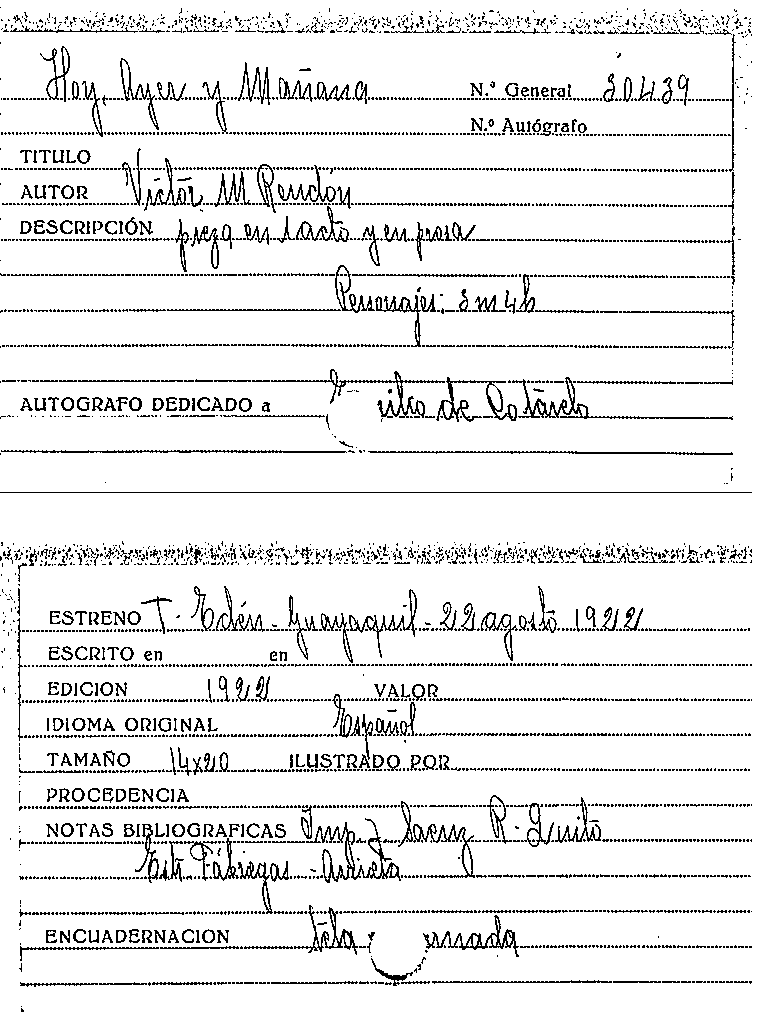 Hoy, Ayer y Mañana N.º General 30439
N.º Autógrafo
TITULO
AUTOR Víctor M Rendón
DESCRIPCIÓN pieza en 1 acto y en prosa
Personajes: 3 m 4 h
AUTOGRAFO DEDICADO a de Cotarelo
ESTRENO T. Edén - Guayaquil - 22 agosto 1922
ESCRITO en en
EDICION 1922 VALOR
IDIOMA ORIGINAL Español
TAMAÑO 14x20 ILUSTRADO POR
PROCEDENCIA
NOTAS BIBLIOGRAFICAS Imp. J Saenz R - Quito
Estr. Fábregas - Ardieta
ENCUADERNACION tela